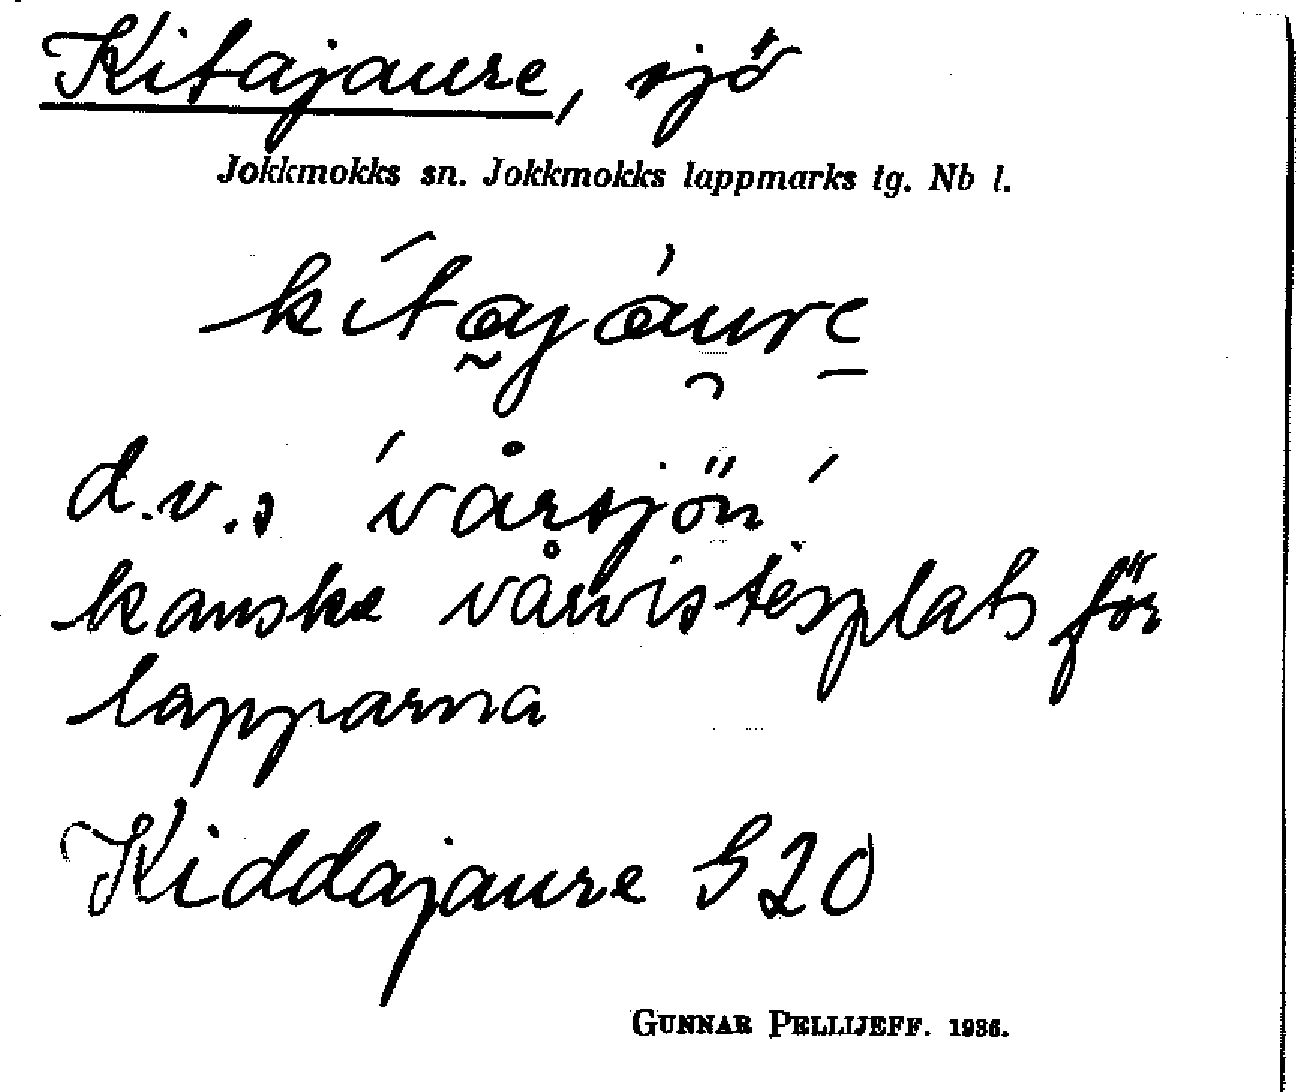 Kitajaure, sjö
Jokkmokks sn. Jokkmokks lappmarks tg. Nb l.
kítа̰jáu̯re̱
d.v.s 'vårsjön'
kanske vårvistesplats för
lapparna
Kiddajaure S20
GUNNAR PELLIJEFF. 1936.